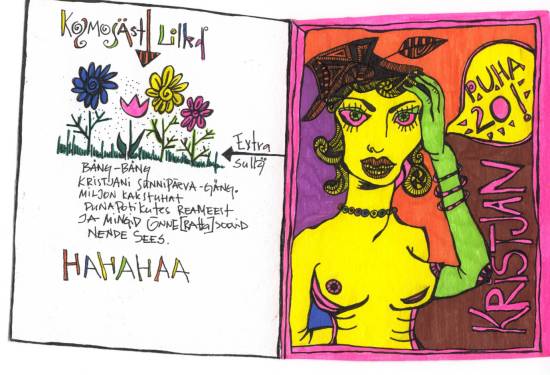 Kosmosäst Lilled
Extra
sulle
BÄNG-BÄNG
KRISTJANI SÜNNIPÄEVA-GÄNG.
MILJON KAKSTUHAT
PUNAPOTIKUTES REAMEEST
JA MINGID ÕNNE[RATTA]SOOVID
NENDE SEES.
HAHAHAA
PUHA
20!
KRISTJAN